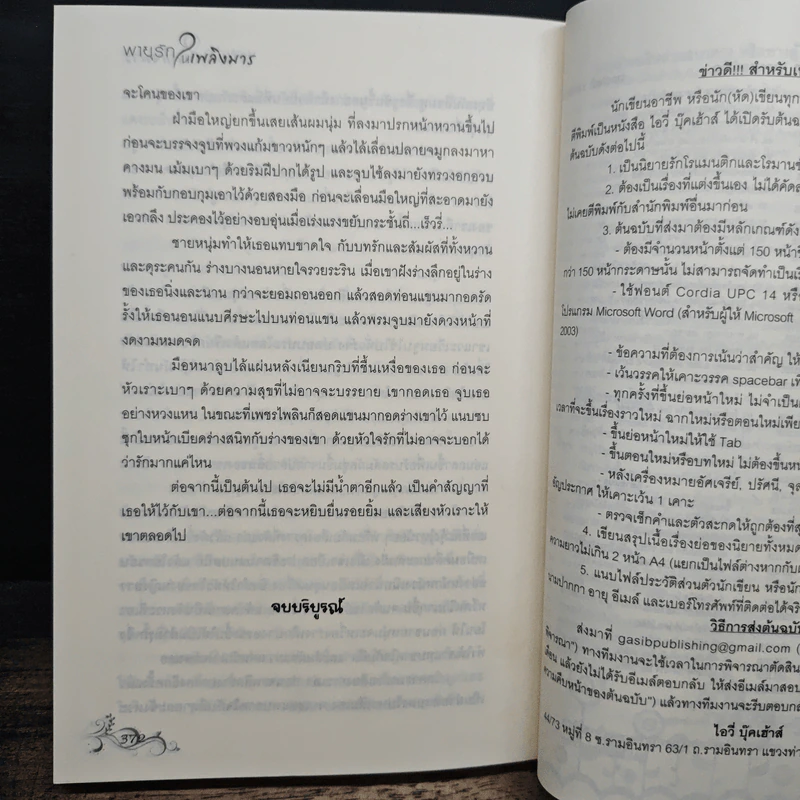 พายุรักในเพลิงมาร
จะโคนของเขา
ฝ่ามือใหญ่ยกขึ้นเสยเส้นผมนุ่ม ที่ลงมาปรกหน้าหวานขึ้นไป
ก่อนจะบรรจงจูบที่พวงแก้มขาวหนักๆ แล้วไล้เลื่อนปลายจมูกลงมาหา
คางมน เม้มเบาๆ ด้วยริมฝีปากได้รูป และจูบไซ้ลงมายังทรวงอกอวบ
พร้อมกับกอบกุมเอาไว้ด้วยสองมือ ก่อนจะเลื่อนมือใหญ่ที่สะอาดมายัง
เอวกลึง ประคองไว้อย่างอบอุ่นเมื่อเร่งแรงขยับกระชั้นถี่...เร็วรี่...
ชายหนุ่มทำให้เธอแทบขาดใจ กับบทรักและสัมผัสที่ทั้งหวาน
และดุระคนกัน ร่างบางนอนหายใจรวยระริน เมื่อเขาฝังร่างลึกอยู่ในร่าง
ของเธอนิ่งและนาน กว่าจะยอมถอนออก แล้วสอดท่อนแขนมากอดรัด
รั้งให้เธอนอนแนบศีรษะไปบนท่อนแขน แล้วพรมจูบมายังดวงหน้าที่
งดงามหมดจด
มือหนาลูบไล้แผ่นหลังเนียนกริบที่ชื้นเหงื่อของเธอ ก่อนจะ
หัวเราะเบาๆ ด้วยความสุขที่ไม่อาจจะบรรยาย เขากอดเธอ จูบเธอ
อย่างหวงแหน ในขณะที่เพชรไพลินก็สอดแขนมากอดร่างเขาไว้ แนบซบ
ซุกใบหน้าเบียดร่างสนิทกับร่างของเขา ด้วยหัวใจรักที่ไม่อาจจะบอกได้
ว่ารักมากแค่ไหน
ต่อจากนี้เป็นต้นไป เธอจะไม่มีน้ำตาอีกแล้ว เป็นคำสัญญาที่
เธอให้ไว้กับเขา...ต่อจากนี้เธอจะหยิบยื่นรอยยิ้ม และเสียงหัวเราะให้
เขาตลอดไป
จบบริบูรณ์
372
ข่าวดี!!! สำหรับ
นักเขียนอาชีพ หรือนัก(หัด)เขียนทุก
ตีพิมพ์เป็นหนังสือ ไอวี่ บุ๊คเฮ้าส์ ได้เปิดรับต้น
ต้นฉบับดังต่อไปนี้
1. เป็นนิยายรักโรแมนติกและโรมาน
2. ต้องเป็นเรื่องที่แต่งขึ้นเอง ไม่ได้คัด
ไม่เคยตีพิมพ์กับสำนักพิมพ์อื่นมาก่อน
3. ต้นฉบับที่ส่งมาต้องมีหลักเกณฑ์ดัง
- ต้องมีจำนวนหน้าตั้งแต่ 150 หน้า
กว่า 150 หน้ากระดาษนั้น ไม่สามารถจัดทำเป็น
- ใช้ฟอนต์ Cordia UPC 14 หรือ
โปรแกรม Microsoft Word (สำหรับผู้ให้ Microsoft
2003)
- ข้อความที่ต้องการเน้นว่าสำคัญ ให้
- เว้นวรรคให้เคาะวรรค spacebar
- ทุกครั้งที่ขึ้นย่อหน้าใหม่ ไม่จำเป็น
เวลาที่จะขึ้นเรื่องราวใหม่ ฉากใหม่หรือตอนใหม่เพียง
- ขึ้นย่อหน้าใหม่ให้ใช้ Tab
- ขึ้นตอนใหม่หรือบทใหม่ ไม่ต้องขึ้น
- หลังเครื่องหมายอัศเจรีย์, ปรัศนี, จุล
อัญประกาศ ให้เคาะเว้น 1 เคาะ
- ตรวจเช็กคำและตัวสะกดให้ถูกต้องที่
4. เขียนสรุปเนื้อเรื่องย่อของนิยายทั้งหมด
ความยาวไม่เกิน 2 หน้า A4 (แยกเป็นไฟล์ต่างหากกับ
5. แนบไฟล์ประวัติส่วนตัวนักเขียน หรือนัก
นามปากกา อายุ อีเมล์ และเบอร์โทรศัพท์ที่ติดต่อได้
วิธีการส่งต้นฉบับ
ส่งมาที่ gasibpublishing@gmail.com (
พิจารณา") ทางทีมงานจะใช้เวลาในการพิจารณาตัดสิน
เดือน แล้วยังไม่ได้รับอีเมล์ตอบกลับ ให้ส่งอีเมล์มาสอบ
ความคืบหน้าของต้นฉบับ") แล้วทางทีมงานจะรีบตอบ
ไอวี่ บุ๊คเฮ้าส์
44/73 หมู่ที่ 8 ซ.รามอินทรา 63/1 ถ.รามอินทรา แขวงท่า